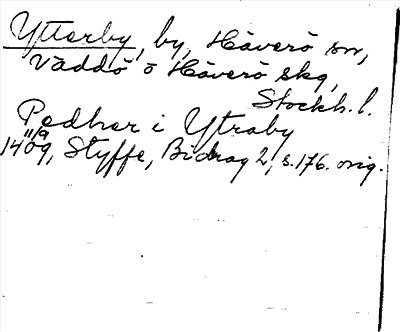 Ytterby, by, Häverö sn,
Väddö o Häverö skg,
Stockh. l.
Pedher i Ytraby
11/9
1409, Styffe, Bidrag 2, s. 176. orig.